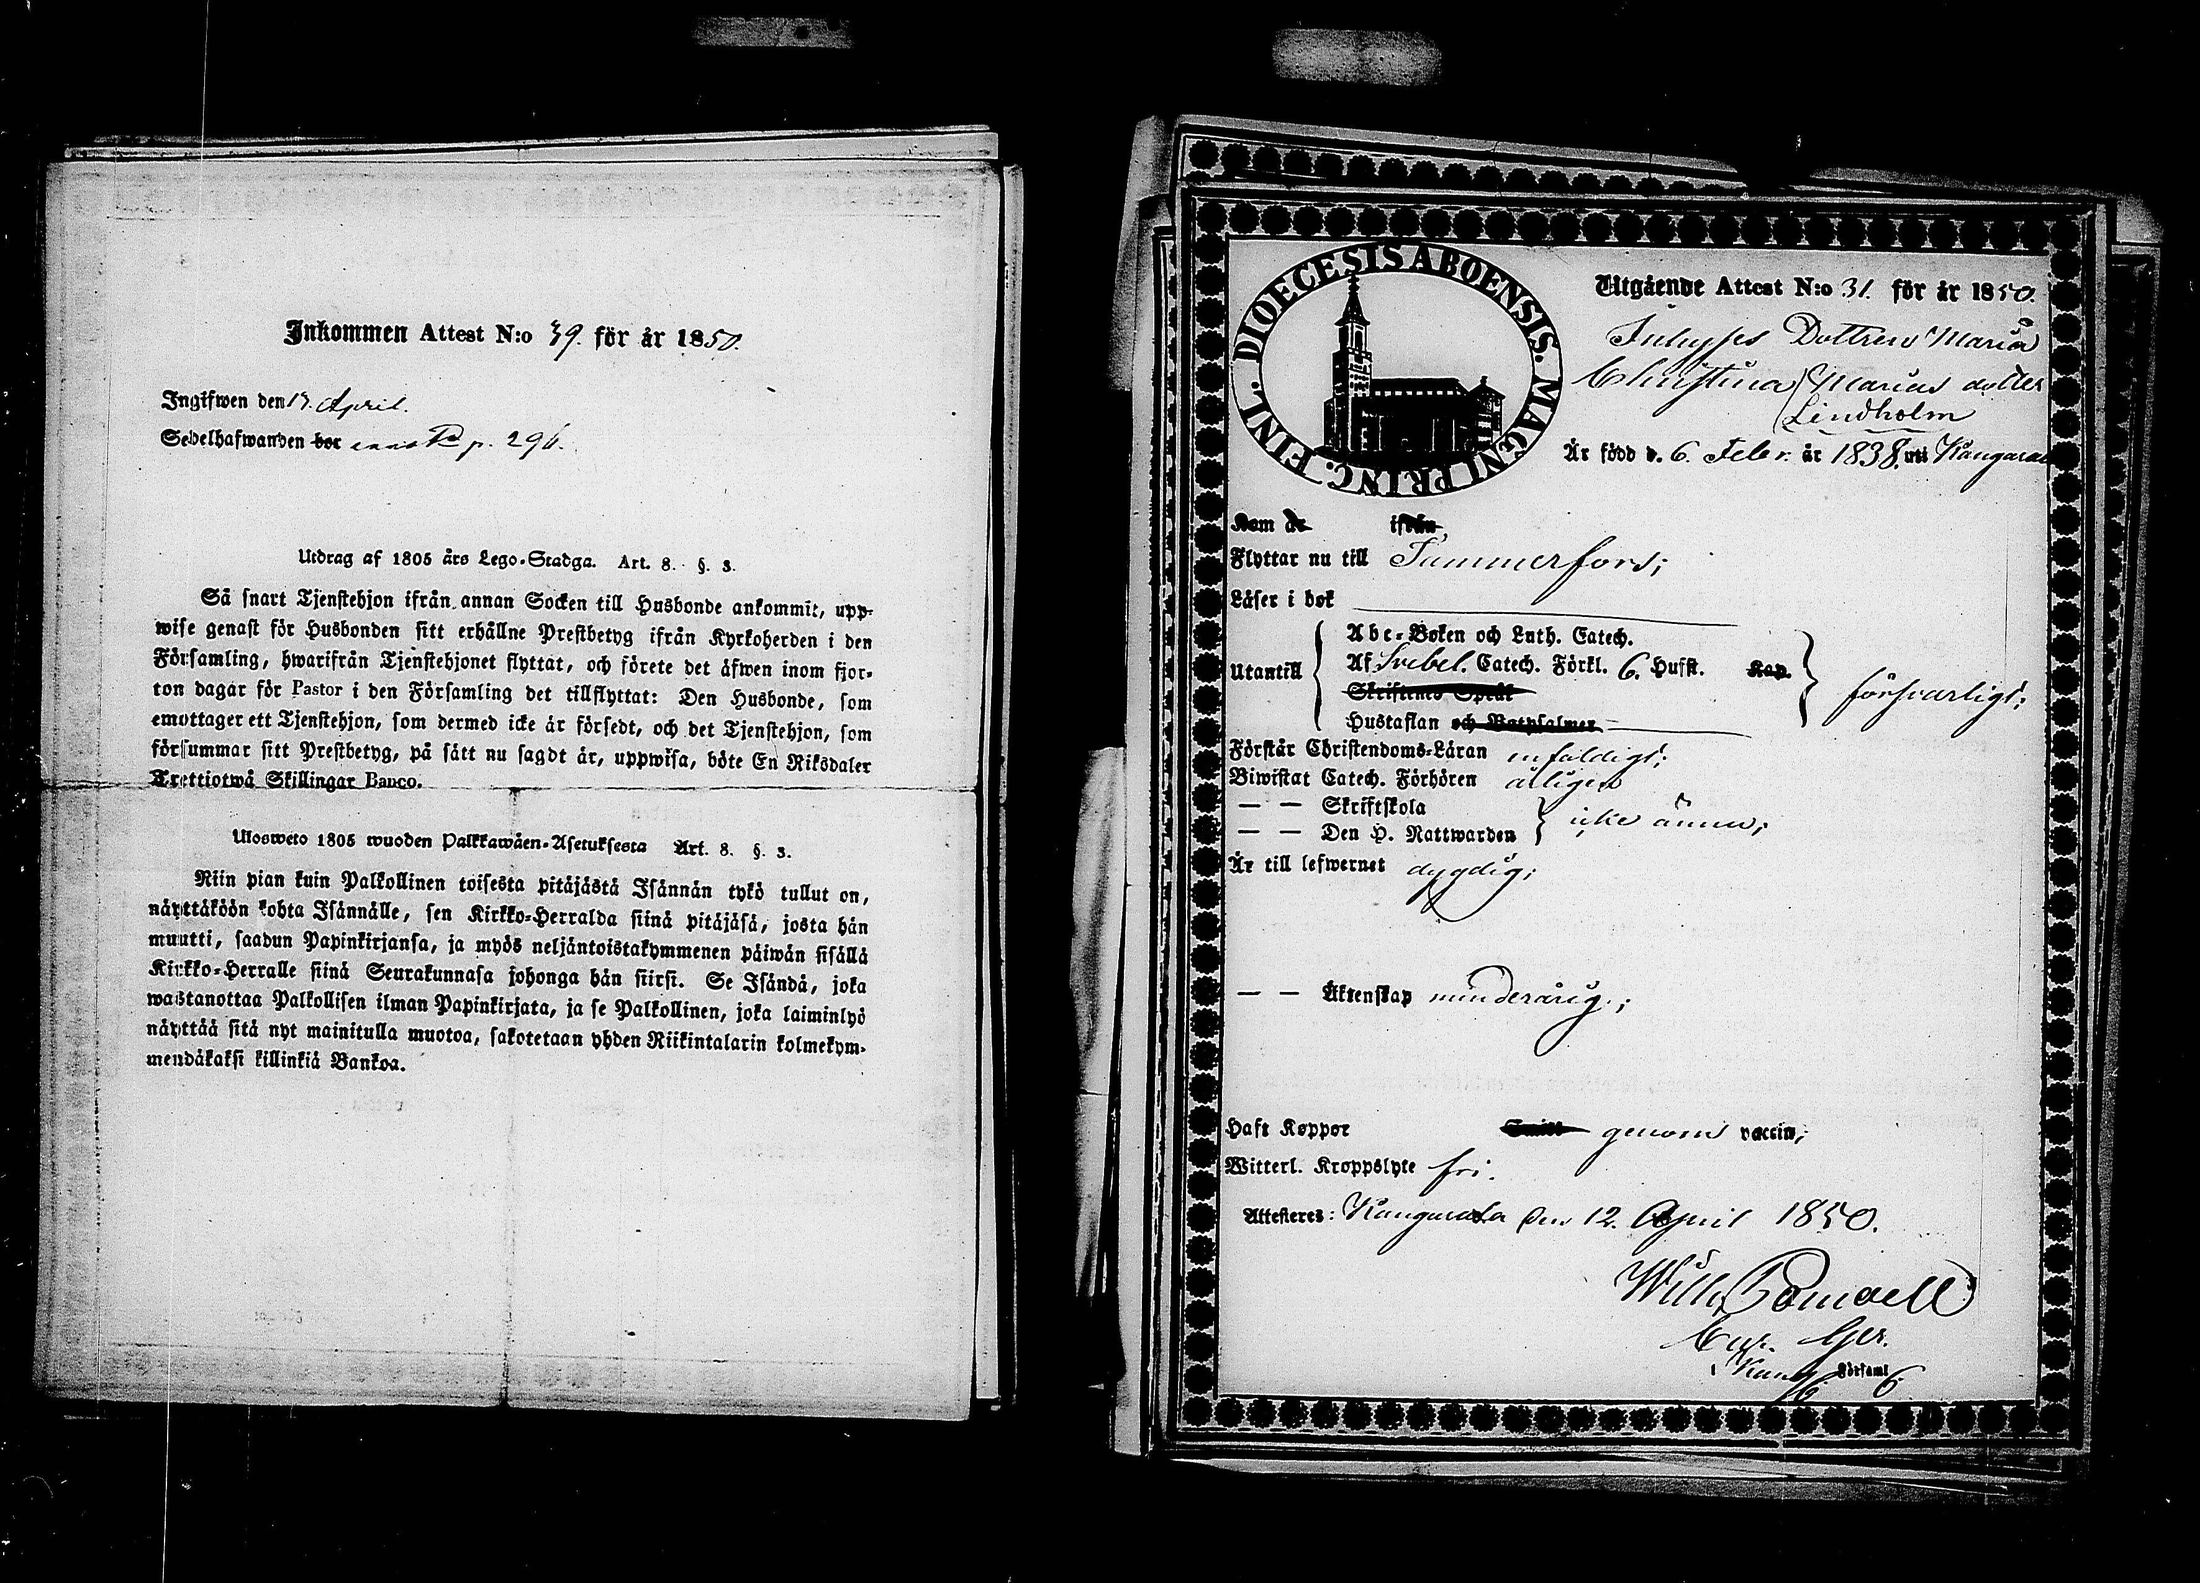 Inkommen Attest N:o 39. för år 1850.
Ingifwen den 19. April.
Sedelhafwanden bor p. 296.
Utdrag af 1805 års Lego-Stadga. Art. 8. §. 3.
Så snart Tjenstehjon ifrån annan Socken till Husbonde ankommit, upp-
wise genast för Husbonden sitt erhållne Prestbetyg ifrån Kyrkoherden i den
Församling, hwarifrån Tjenstehjonet flyttat, och förete det äfwen inom fjor-
ton dagar för Pastor i den Församling det tillflyttat: Den Husbonde, som
emottager ett Tjenstehjon, som dermed icke är försedt, och det Tjenstehjon, som
försummar sitt Prestbetyg, på sätt nu sagdt är, uppwisa, böte En Riksdaler
Trettiotwå Skillingar Banco.
Ulosweto 1805 wuoden Palkkawäen-Asetuksesta Art. 8. §. 3.
Niin pian kuin Palkollinen toisesta pitäjästä Isännän tykö tullut on,
näyttäköön kohta Isännälle, sen Kirkko-Herralda siinä pitäjäsä, josta hän
muutti, saadun Papinkirjansa, ja myös neljäntoistakymmenen päiwän sisällä
Kirkko-Herralle siinä Seurakunnasa johonga hän siirsi. Se Isändä, joka
wastanottaa Palkollisen ilman Papinkirjata, ja se Palkollinen, joka laiminlyö
näyttää sitä nyt mainitulla muotoa, sakotetaan yhden Riikintalarin kolmekym-
mendäkaksi killinkiä Bankoa.
DIOECESIS ABOENSIS. MAGNI PRINC. FINL.
Utgående Attest N:o 31. för år 1850.
Inhyses Dottren Maria
Christina (Marias dotter
Lindholm
Är född d. 6. Febr. år 1838. uti Kangasala
Kom år ifrån
Flyttar nu till Tammerfors;
Läser i bok
Utantill
Abc-Boken och Luth. Catech.
Af Svebel. Catech. Förkl. 6. Hufst. Kap.
Skriftenes Språk
Hustaflan och Botpsalmer
försvarligt;
Förstår Christendoms-Läran enfaldigt;
Biwistat Catech. Förhören årligen
— — Skriftskola
— — Den H. Nattwarden
icke ännu;
Är till lefwernet dygdig;
— — Äktenskap minderårig;
Haft Koppor genom vaccin;
Witterl. Kroppslyte fri.
Attesteres: Kangasala den 12. April 1850.
Församl.